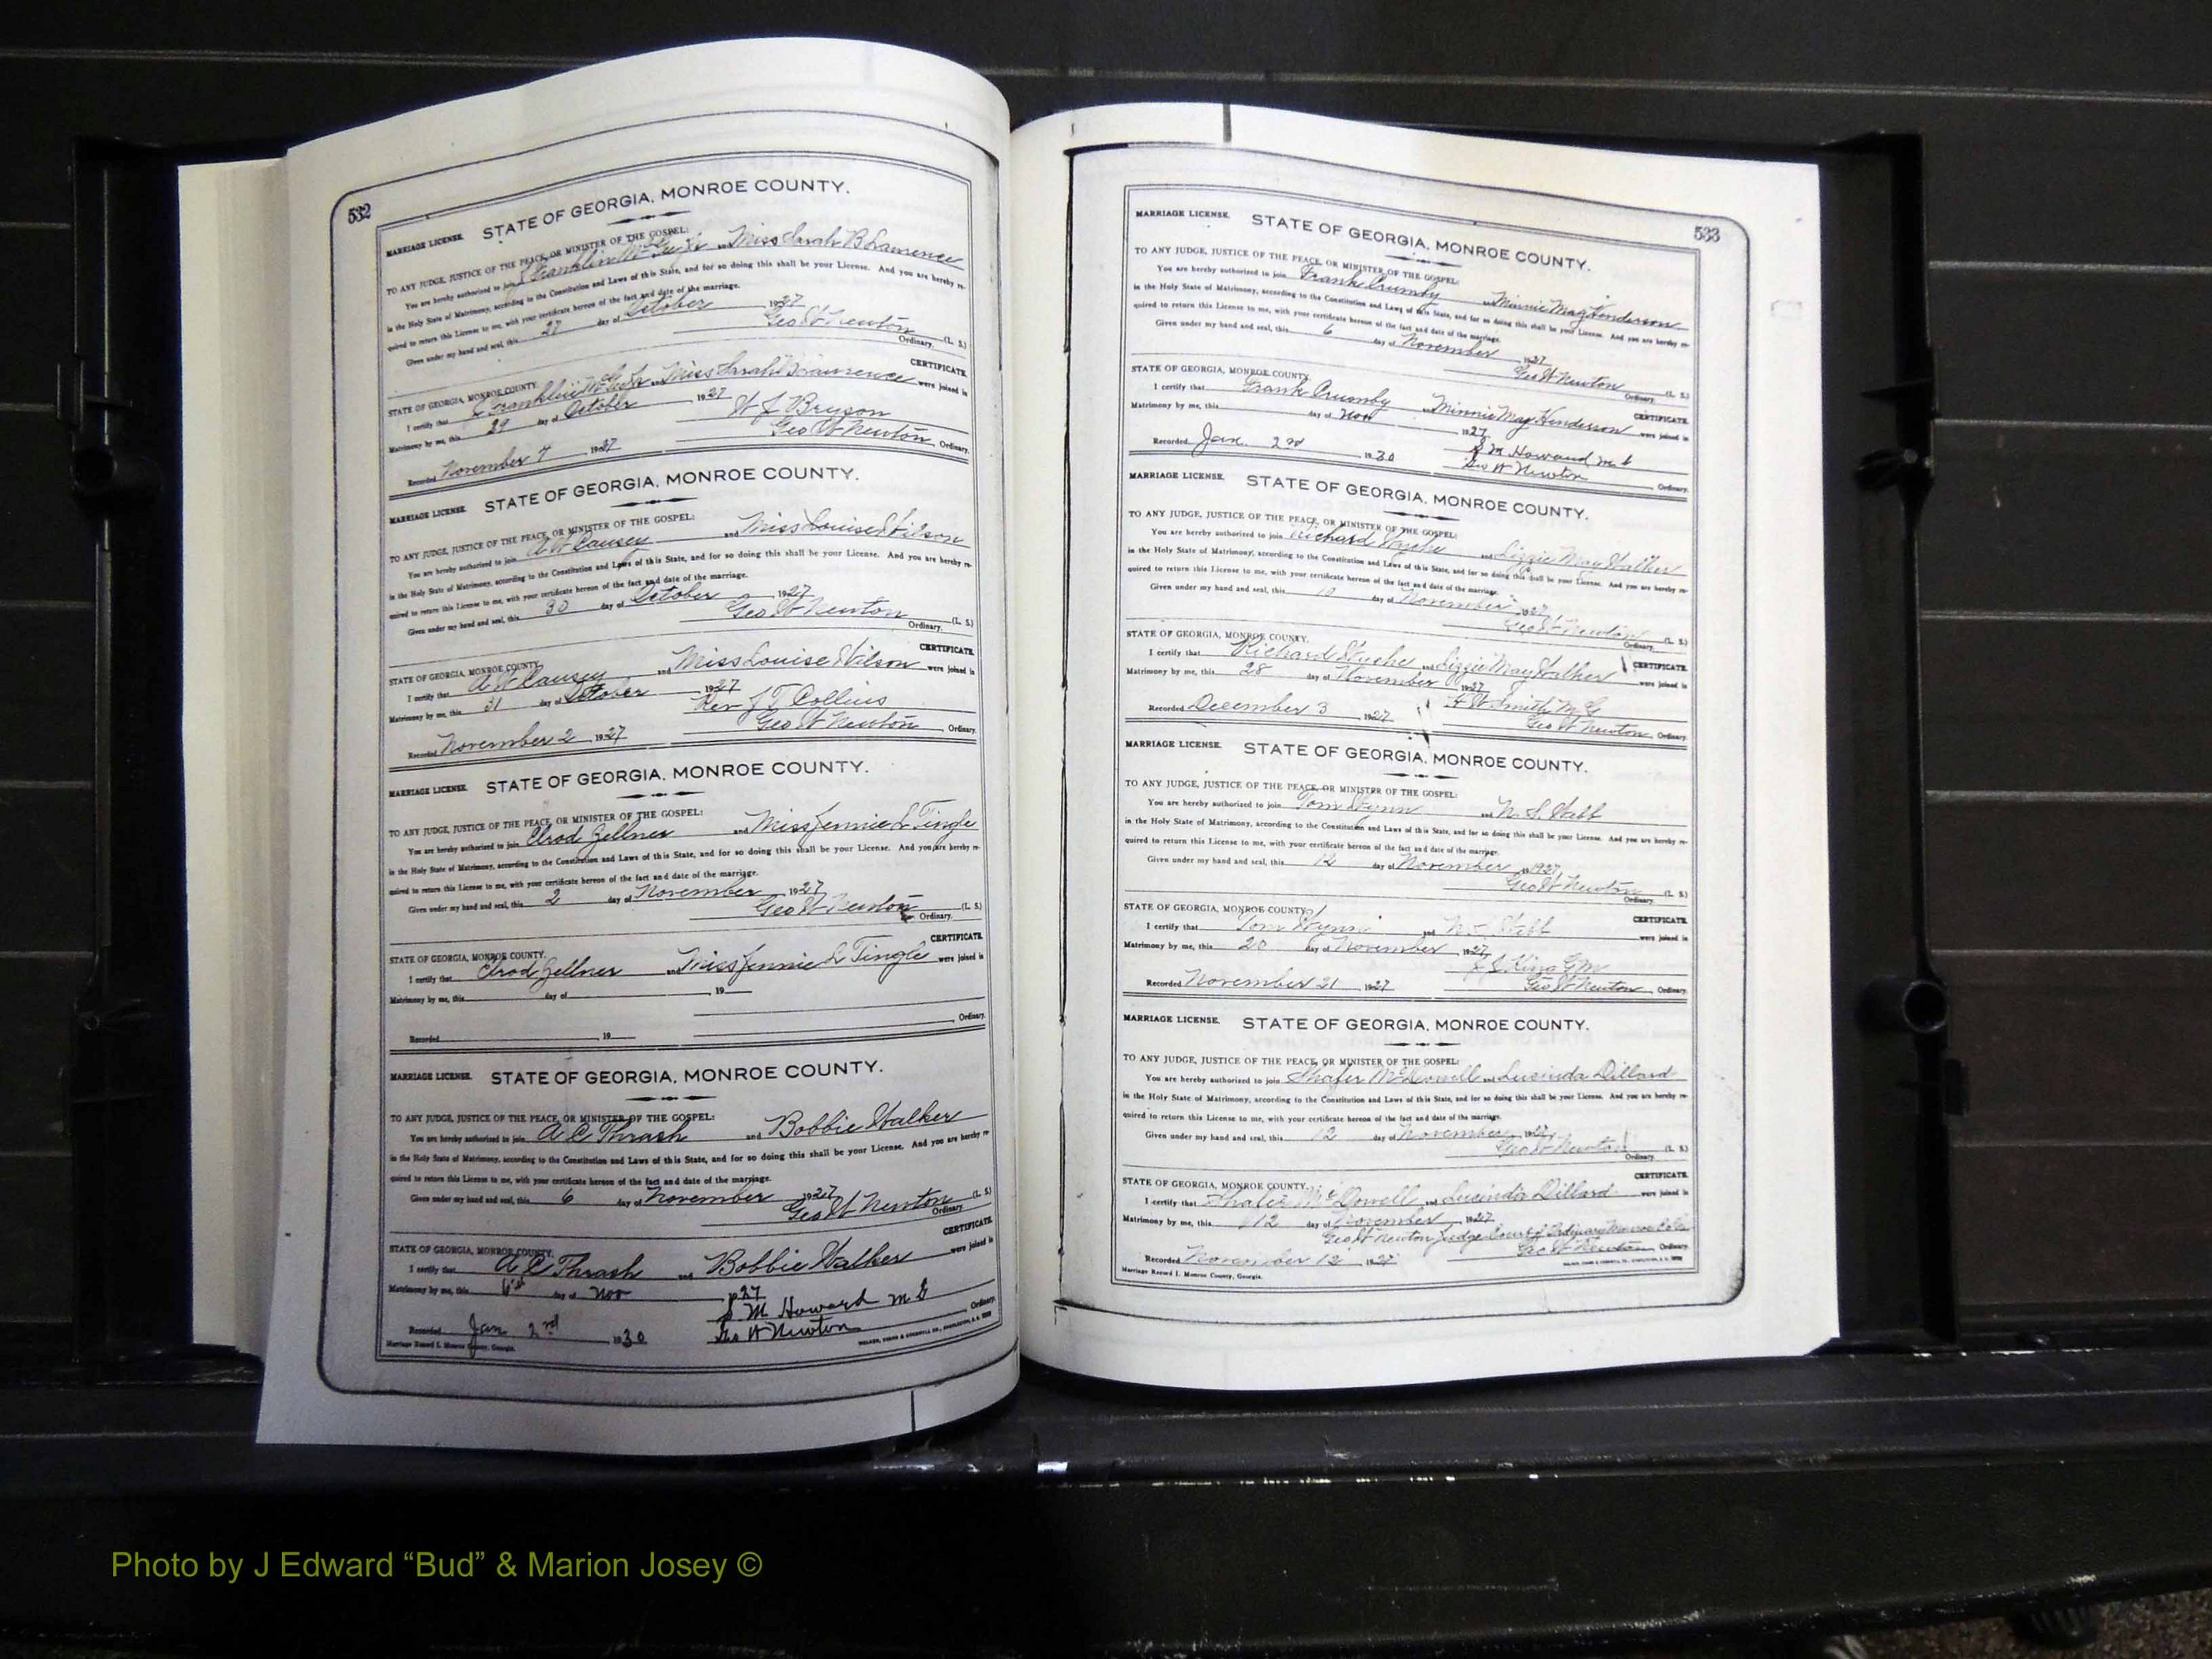 532
MARRIAGE LICENSE. STATE OF GEORGIA, MONROE COUNTY.
TO ANY JUDGE, JUSTICE OF THE PEACE, OR MINISTER OF THE GOSPEL:
You are hereby authorized to join Franklin and Miss Sarah B Lawrence
in the Holy State of Matrimony, according to the Constitution and Laws of this State, and for so doing this shall be your License. And you are hereby re-
quired to return this License to me, with your certificate hereon of the fact and date of the marriage.
Given under my hand and seal, this 27 day of October 1927
Geo W Newton (L. S.)
Ordinary.
CERTIFICATE.
STATE OF GEORGIA, MONROE COUNTY.
I certify that Franklin and Miss Sarah B Lawrence were joined in
Matrimony by me, this 29 day of October 1927
W J Bryson
Recorded November 7 1927 Geo W Newton Ordinary.
MARRIAGE LICENSE. STATE OF GEORGIA, MONROE COUNTY.
TO ANY JUDGE, JUSTICE OF THE PEACE, OR MINISTER OF THE GOSPEL:
You are hereby authorized to join A W Causey and Miss Louise Wilson
in the Holy State of Matrimony, according to the Constitution and Laws of this State, and for so doing this shall be your License. And you are hereby re-
quired to return this License to me, with your certificate hereon of the fact and date of the marriage.
Given under my hand and seal, this 30 day of October 1927
Geo W Newton (L. S.)
Ordinary.
CERTIFICATE.
STATE OF GEORGIA, MONROE COUNTY.
I certify that A W Causey and Miss Louise Wilson were joined in
Matrimony by me, this 31 day of October 1927
Rev J T Collins
Recorded November 2 1927 Geo W Newton Ordinary.
MARRIAGE LICENSE. STATE OF GEORGIA, MONROE COUNTY.
TO ANY JUDGE, JUSTICE OF THE PEACE, OR MINISTER OF THE GOSPEL:
You are hereby authorized to join Elrod Zellner and Miss Jennie L Tingle
in the Holy State of Matrimony, according to the Constitution and Laws of this State, and for so doing this shall be your License. And you are hereby re-
quired to return this License to me, with your certificate hereon of the fact and date of the marriage.
Given under my hand and seal, this 2 day of November 1927
Geo W Newton (L. S.)
Ordinary.
CERTIFICATE.
STATE OF GEORGIA, MONROE COUNTY.
I certify that Elrod Zellner and Miss Jennie L Tingle were joined in
Matrimony by me, this day of , 19
Recorded 19 Ordinary.
MARRIAGE LICENSE. STATE OF GEORGIA, MONROE COUNTY.
TO ANY JUDGE, JUSTICE OF THE PEACE, OR MINISTER OF THE GOSPEL:
You are hereby authorized to join A C Thrash and Bobbie Walker
in the Holy State of Matrimony, according to the Constitution and Laws of this State, and for so doing this shall be your License. And you are hereby re-
quired to return this License to me, with your certificate hereon of the fact and date of the marriage.
Given under my hand and seal, this 6 day of November 1927
Geo W Newton (L. S.)
Ordinary.
CERTIFICATE.
STATE OF GEORGIA, MONROE COUNTY.
I certify that A C Thrash and Bobbie Walker were joined in
Matrimony by me, this 6th day of Nov 1927
S M Howard M G
Recorded Jan 2nd 1930 Geo W Newton Ordinary.
Marriage Record I. Monroe County, Georgia.
533
MARRIAGE LICENSE. STATE OF GEORGIA, MONROE COUNTY.
TO ANY JUDGE, JUSTICE OF THE PEACE, OR MINISTER OF THE GOSPEL:
You are hereby authorized to join Frank Crumby and Minnie May Henderson
in the Holy State of Matrimony, according to the Constitution and Laws of this State, and for so doing this shall be your License. And you are hereby re-
quired to return this License to me, with your certificate hereon of the fact and date of the marriage.
Given under my hand and seal, this 6 day of November 1927
Geo W Newton (L. S.)
Ordinary.
STATE OF GEORGIA, MONROE COUNTY.
CERTIFICATE.
I certify that Frank Crumby and Minnie May Henderson were joined in
Matrimony by me, this day of Nov 1927
S M Howard M G
Recorded Jan. 2nd 1930 Geo W Newton Ordinary.
MARRIAGE LICENSE. STATE OF GEORGIA, MONROE COUNTY.
TO ANY JUDGE, JUSTICE OF THE PEACE, OR MINISTER OF THE GOSPEL:
You are hereby authorized to join Richard Wyche and Lizzie May Walker
in the Holy State of Matrimony, according to the Constitution and Laws of this State, and for so doing this shall be your License. And you are hereby re-
quired to return this License to me, with your certificate hereon of the fact and date of the marriage.
Given under my hand and seal, this 10 day of November 1927
Geo W Newton (L. S.)
Ordinary.
STATE OF GEORGIA, MONROE COUNTY.
CERTIFICATE.
I certify that Richard Wyche and Lizzie May Walker were joined in
Matrimony by me, this 28 day of November 1927
Smith M G
Recorded December 3 1927 Geo W Newton Ordinary.
MARRIAGE LICENSE. STATE OF GEORGIA, MONROE COUNTY.
TO ANY JUDGE, JUSTICE OF THE PEACE, OR MINISTER OF THE GOSPEL:
You are hereby authorized to join Tom Wynn and N. S. Webb
in the Holy State of Matrimony, according to the Constitution and Laws of this State, and for so doing this shall be your License. And you are hereby re-
quired to return this License to me, with your certificate hereon of the fact and date of the marriage.
Given under my hand and seal, this 12 day of November 1927
Geo W Newton (L. S.)
Ordinary.
STATE OF GEORGIA, MONROE COUNTY.
CERTIFICATE.
I certify that Tom Wynn and N. S. Webb were joined in
Matrimony by me, this 20 day of November 1927
King G M
Recorded November 21 1927 Geo W Newton Ordinary.
MARRIAGE LICENSE. STATE OF GEORGIA, MONROE COUNTY.
TO ANY JUDGE, JUSTICE OF THE PEACE, OR MINISTER OF THE GOSPEL:
You are hereby authorized to join Shafer McDowell and Lucinda Dillard
in the Holy State of Matrimony, according to the Constitution and Laws of this State, and for so doing this shall be your License. And you are hereby re-
quired to return this License to me, with your certificate hereon of the fact and date of the marriage.
Given under my hand and seal, this 12 day of November 1927
Geo W Newton (L. S.)
Ordinary.
CERTIFICATE.
STATE OF GEORGIA, MONROE COUNTY.
I certify that Shafer McDowell and Lucinda Dillard were joined in
Matrimony by me, this 12 day of November 1927
Geo W Newton Judge Court of Ordinary Monroe Co Ga
Recorded November 12 1927 Geo W Newton Ordinary.
Marriage Record I. Monroe County, Georgia.
Photo by J Edward “Bud” & Marion Josey ©